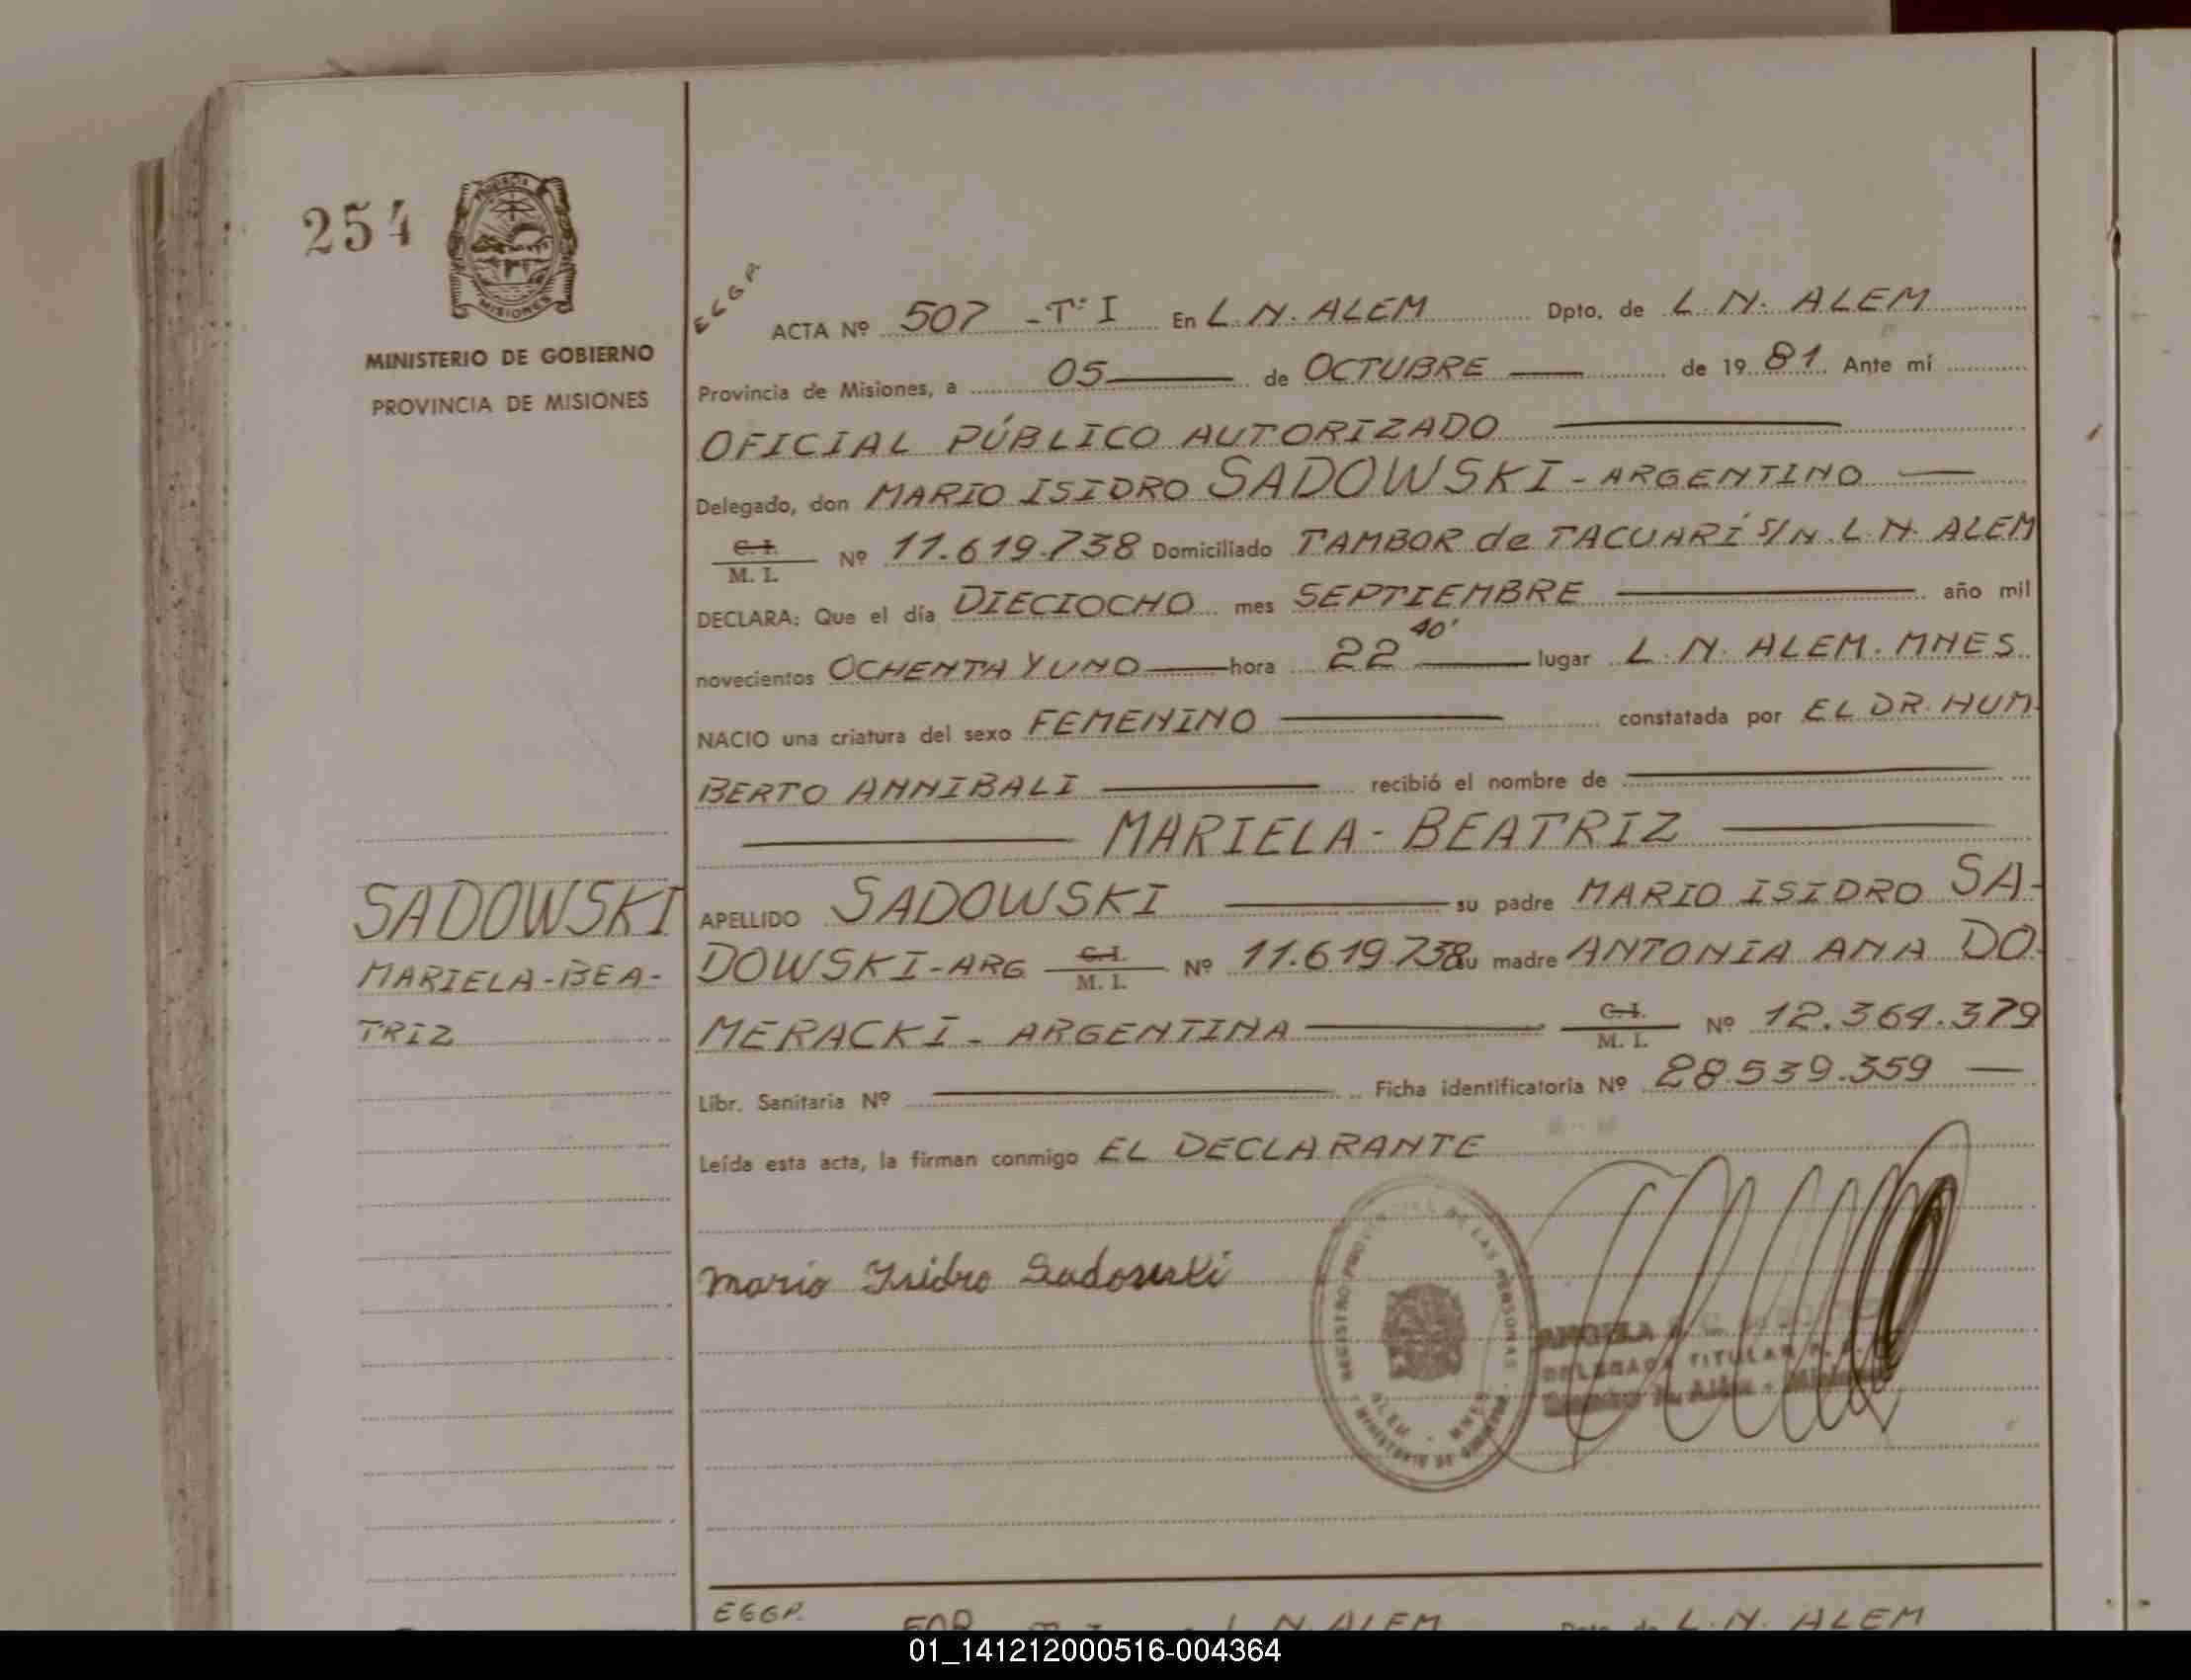 254
PROVINCIA
MISIONES
MINISTERIO DE GOBIERNO
PROVINCIA DE MISIONES
ACTA Nº 507 -Tº I En L.N. ALEM Dpto. de L.N. ALEM
Provincia de Misiones, a 05 de OCTUBRE de 1981 Ante mí
OFICIAL PÚBLICO AUTORIZADO
Delegado, don MARIO ISIDRO SADOWSKI - ARGENTINO
C. I.
M. I. Nº 11.619.738 Domiciliado TAMBOR de TACUARÍ S/N. L.N. ALEM
DECLARA: Que el día DIECIOCHO mes SEPTIEMBRE año mil
novecientos OCHENTA Y UNO hora 22 40' lugar L.N. ALEM. MNES
NACIO una criatura del sexo FEMENINO constatada por EL DR. HUM
BERTO ANNIBALI recibió el nombre de
MARIELA - BEATRIZ
SADOWSKI
MARIELA-BEA-
TRIZ
APELLIDO SADOWSKI su padre MARIO ISIDRO SA-
DOWSKI-ARG. C. I. M. I. Nº 11.619.738 su madre ANTONIA ANA DO-
MERACKI - ARGENTINA C. I. M. I. Nº 12.364.379
Libr. Sanitaria Nº Ficha identificatoria Nº 28.539.359
Leída esta acta, la firman conmigo EL DECLARANTE
Mario Isidro Sadowski
DE LAS PERSONAS
REGISTRO
ALEM - MNES
MINISTERIO DE GOBIERNO
DELEGADA TITULAR
508 L.N. ALEM Dpto. de L.N. ALEM
01_141212000516-004364